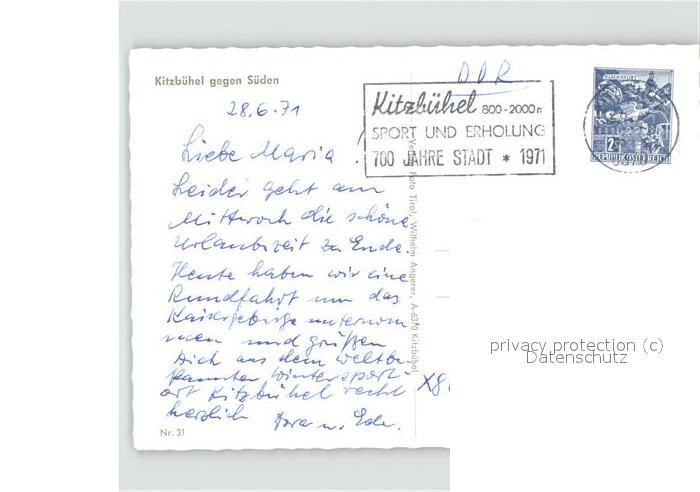 Kitzbühel gegen Süden
28.6.71
DDR
Kitzbühel 800-2000m
SPORT UND ERHOLUNG
700 JAHRE STADT * 1971
2S
REPUBLIK ÖSTERREICH
Liebe Maria!
Leider geht am
Mittwoch die schöne
Urlaubszeit zu Ende.
Heute haben wir eine
Rundfahrt um das
Kaisergebirge unternom
men und grüßen
Dich aus dem weltbe,
kannten Wintersport,
ort Kitzbühel recht
herzlich
Dora u. Ede.
Nr. 31
Foto Tirol, Wilhelm Angerer, A-6370 Kitzbühel
X8
privacy protection (c)
Datenschutz